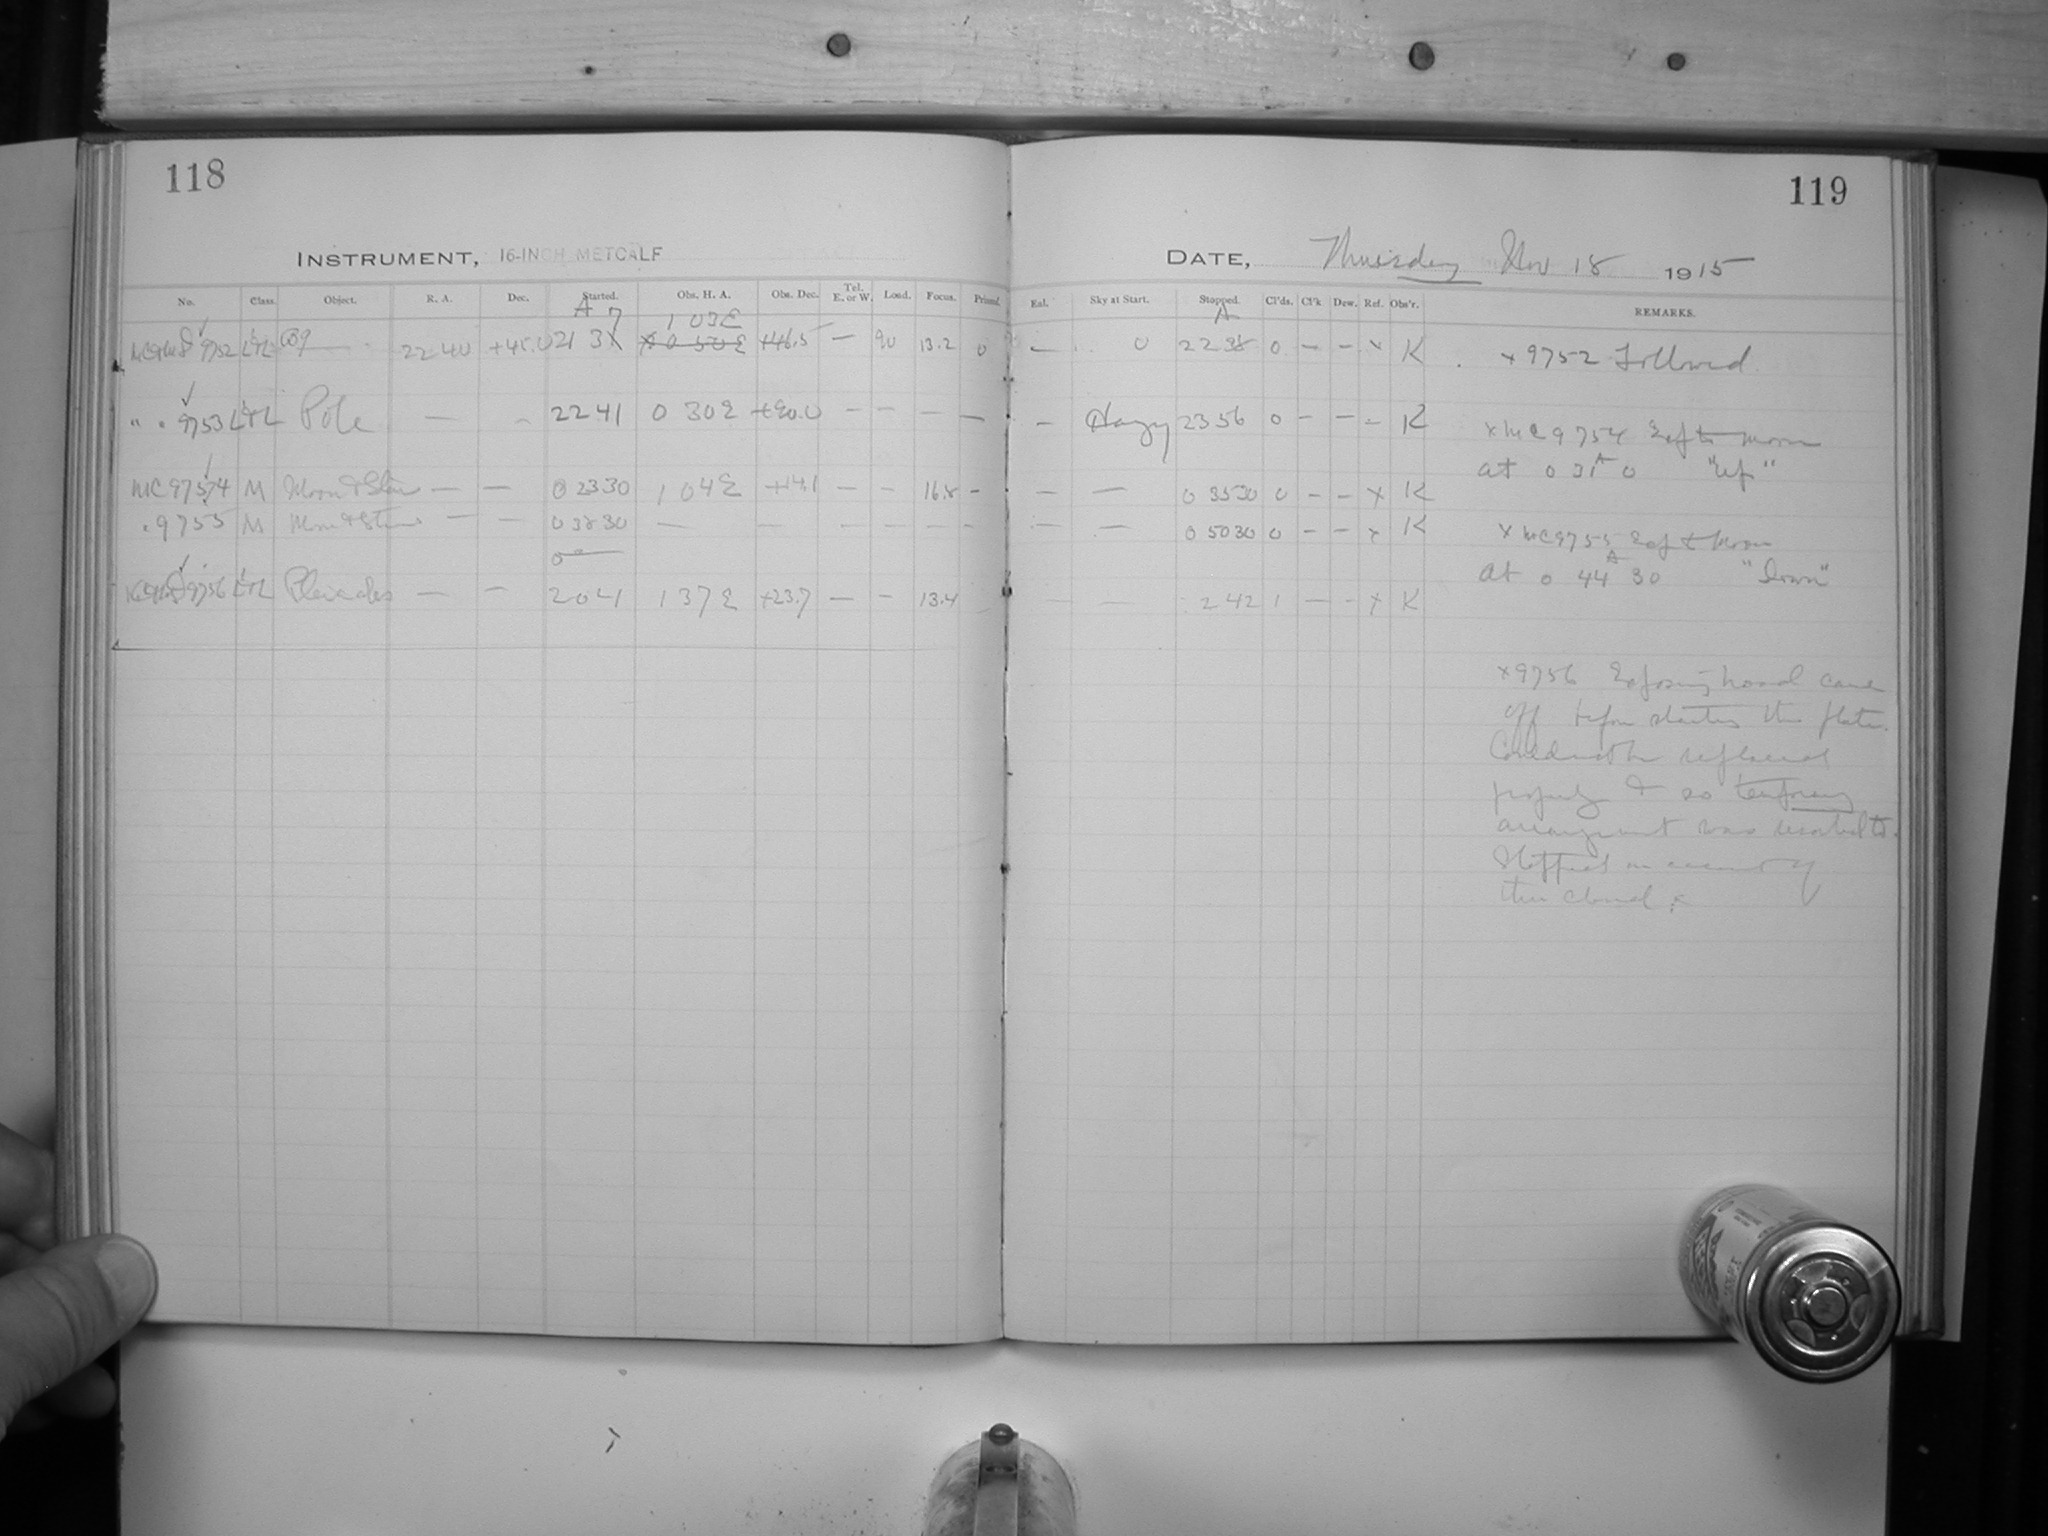 118
119
INSTRUMENT, 16-INCH METCALF
DATE, Thursday Nov 18 1915
No. Class. Object. R. A. Dec. Started. Obs. H. A. Obs. Dec. Tel. E. or W. Load. Focus. Prismd.
Eal. Sky at Start. Stopped. Cl'ds. Cl'k Dew. Ref. Obs'r. REMARKS.
A 7 1 03E A
9752 22 40 +45.0 21 3 +46.5 — 90 13.2 0 — 0 22 38 0 — — x K x 9752 Followed
" 9753 Pole — 22 41 0 30E +90.0 — — — — — Hazy 23 56 0 — — – K
x MC 9754 moon
at 0 31 0 "Up"
A
MC 9754 M Moon & Stars — — 0 23 30 1 04E +14.1 — — 16.8 – — — 0 35 30 0 — — x K
9755 M Moon & Stars — — 0 38 30 — — — — — — — — 0 50 30 0 — — x K
x MC 9755 Moon
at 0 44 30 "Down"
A
9756 Pleiades — — 2 04 1 37E +23.7 — — 13.4 — 2 42 1 — – x K
x 9756 Exposing came
off before starting this plate.
Could not be replaced
properly & so temporary
arrangement was resorted to.
Stopped on account of
the clouds